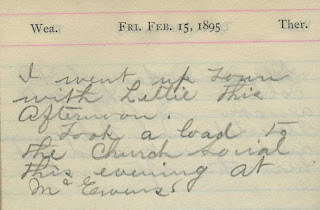 Wea. FRI. FEB. 15, 1895 Ther.
I went up town
with Lettie this
afternoon.
Took a load to
the Church social
this evening at
Mc Ewens.